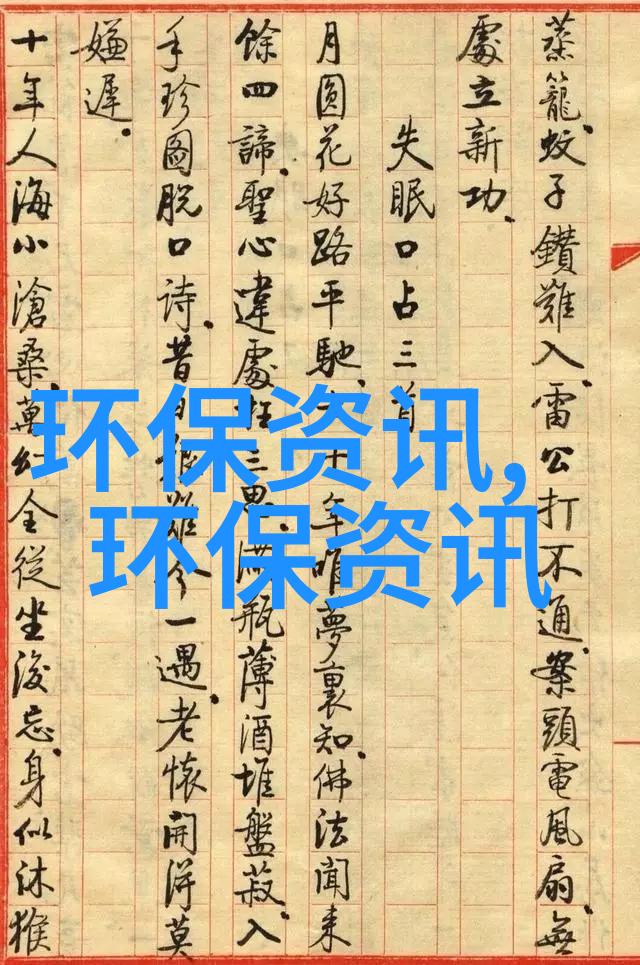 蒸籠.蚊子鑽難入.雷公打不通.案頭電風扇.無
處立新功.
失眠口占三首
月圓花好路平馳.七十年唯夢裏知.佛法聞來
餘四諦.聖心違處枉三思.滿瓶薄酒堆盤菽.入
手珍圖脫口詩.昔日艱難今一遇.老懷開得莫
嫌遲.
十年人海小滄桑.萬幻全從坐後忘.身似沐猴
环保资讯,
环保资讯